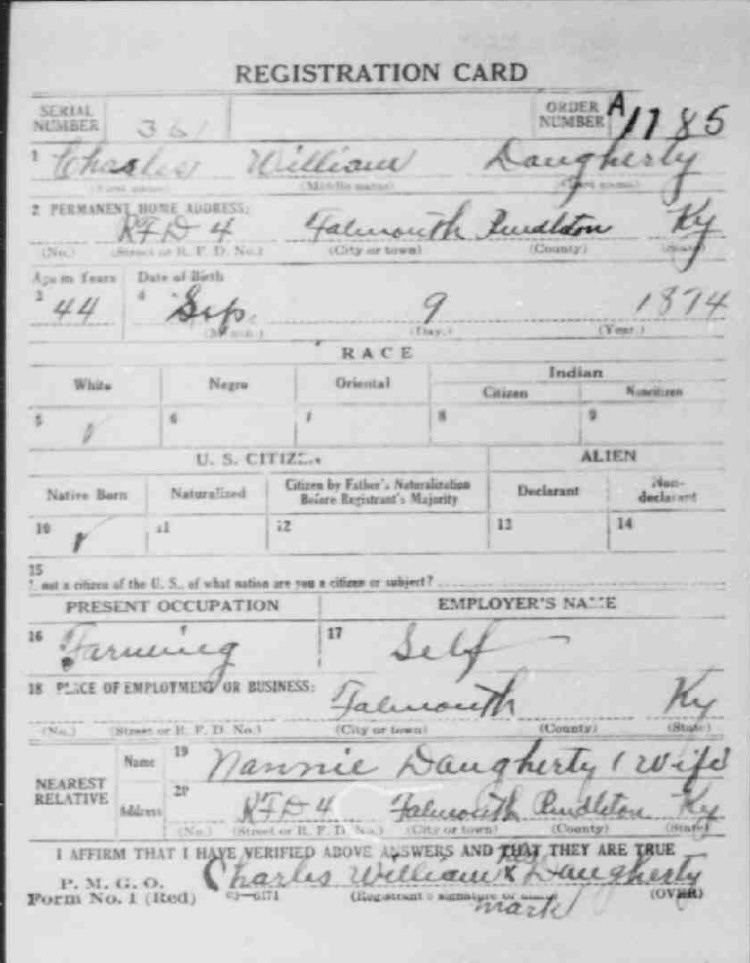 REGISTRATION CARD
SERIAL NUMBER 361 ORDER NUMBER A1785
1 Charles William Daugherty
(First name) (Middle name) (Last name)
2 PERMANENT HOME ADDRESS:
RFD 4 Falmouth Pendleton Ky
(No.) (Street or R. F. D. No.) (City or town) (County) (State)
Age in Years Date of Birth
3 44 4 Sep. 9 1874
(Month.) (Day.) (Year.)
RACE
White Negro Oriental Indian
Citizen Noncitizen
5 6 7 8 9
U. S. CITIZEN ALIEN
Native Born Naturalized Citizen by Father's Naturalization Before Registrant's Majority Declarant Non-declarant
10 11 12 13 14
15
If not a citizen of the U. S., of what nation are you a citizen or subject?
PRESENT OCCUPATION EMPLOYER'S NAME
16 Farming 17 Self
18 PLACE OF EMPLOYMENT OR BUSINESS:
Falmouth Ky
(No.) (Street or R. F. D. No.) (City or town) (County) (State)
NEAREST RELATIVE Name 19 Nannie Daugherty (Wife
Address 20 RFD 4 Falmouth Pendleton Ky
(No.) (Street or R. F. D. No.) (City or town) (County) (State)
I AFFIRM THAT I HAVE VERIFIED ABOVE ANSWERS AND THAT THEY ARE TRUE
P. M. G. O.
Form No. 1 (Red)
Charles William his X Daugherty
mark
03—6171 (Registrant's signature or mark) (OVER)